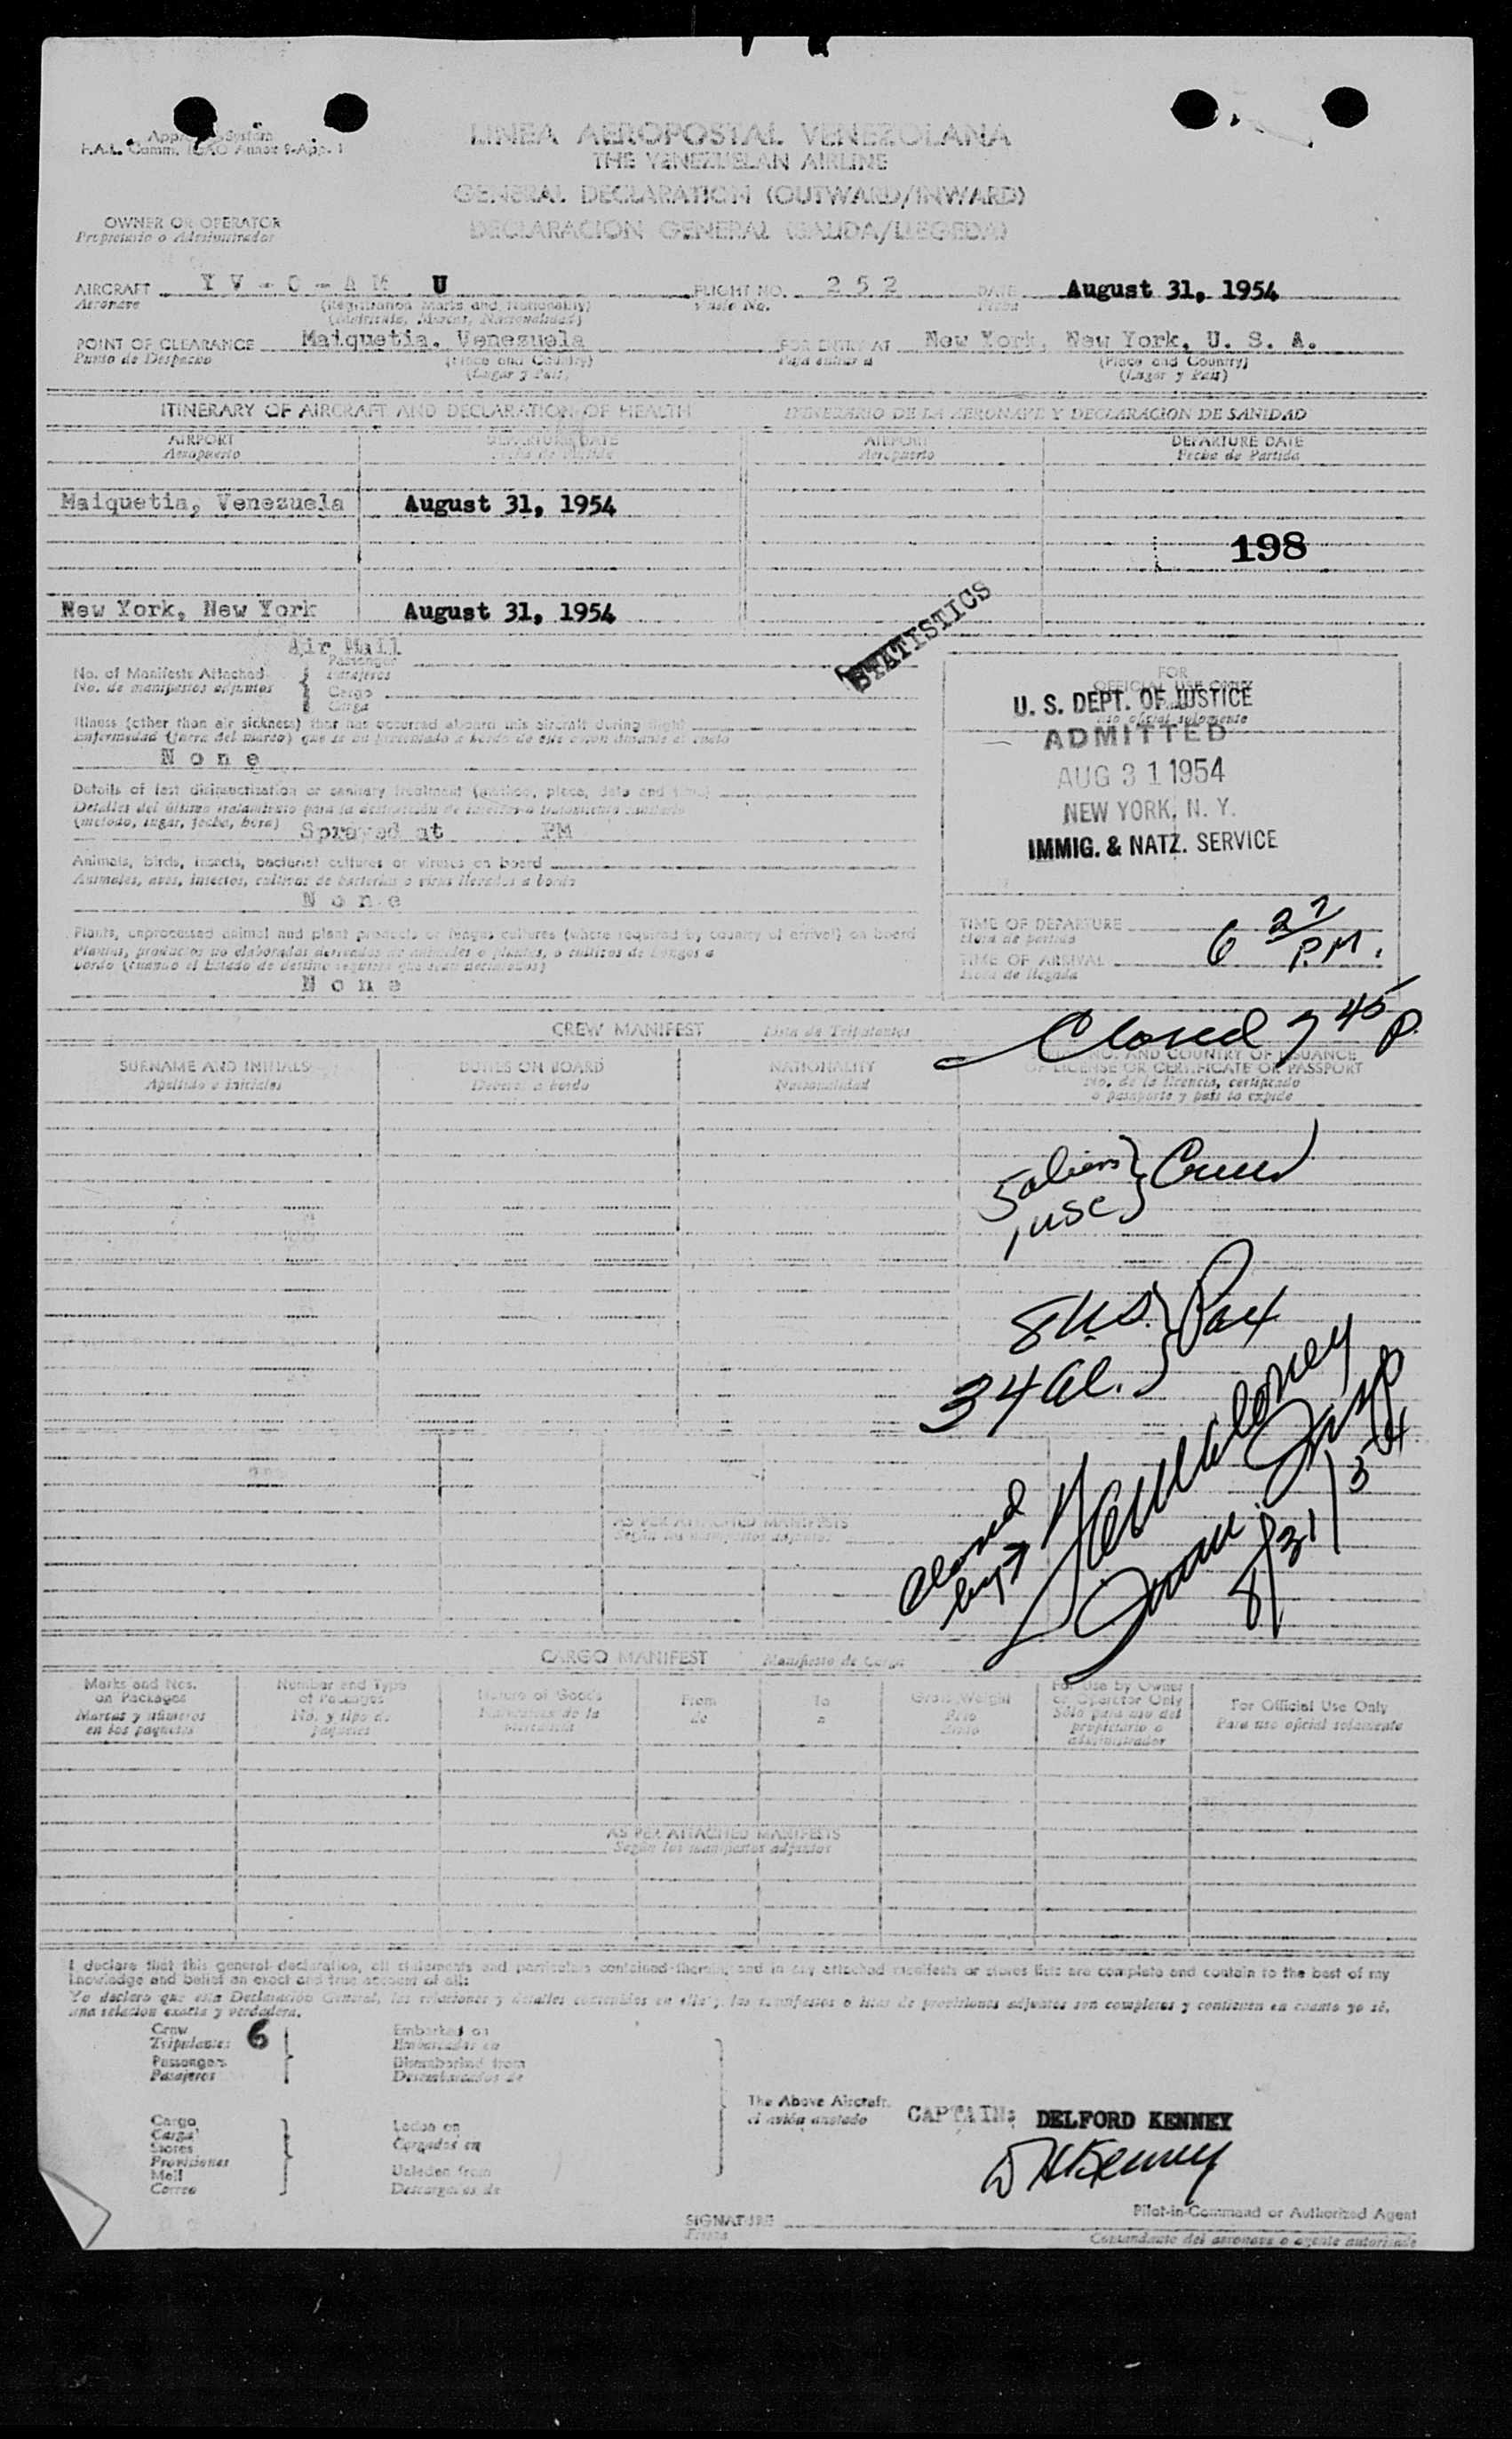 F.A.L. Comm. ICAO Annex 9-App. 1
LINEA AEROPOSTAL VENEZOLANA
THE VENEZUELAN AIRLINE
GENERAL DECLARATION (OUTWARD/INWARD)
DECLARACION GENERAL (SALIDA/LLEGEDA)
OWNER OR OPERATOR
Propietario o Administrador
AIRCRAFT Y V - C - A M U FLIGHT NO. 2 5 2 DATE August 31, 1954
Aeronave (Registration Marks and Nationality) Vuelo No. Fecha
(Matricula, Marcas, Nacionalidad)
POINT OF CLEARANCE Maiquetia, Venezuela FOR ENTRY AT New York, New York, U. S. A.
Punto de Despacho (Place and Country) Para entrar a (Place and Country)
(Lugar y Pais) (Lugar y Pais)
ITINERARY OF AIRCRAFT AND DECLARATION OF HEALTH ITINERARIO DE LA AERONAVE Y DECLARACION DE SANIDAD
AIRPORT DEPARTURE DATE AIRPORT DEPARTURE DATE
Aeropuerto Fecha de Partida Aeropuerto Fecha de Partida
Maiquetia, Venezuela August 31, 1954
198
New York, New York August 31, 1954
STATISTICS
Air Mail
No. of Manifests Attached Passenger
No. de manifiestos adjuntos Pasajeros
Cargo
Carga
FOR
OFFICIAL USE ONLY
uso oficial solamente
U. S. DEPT. OF JUSTICE
ADMITTED
AUG 31 1954
NEW YORK, N. Y.
IMMIG. & NATZ. SERVICE
Illness (other than air sickness) that has occurred aboard this aircraft during flight
Enfermedad (fuera del mareo) que se ha presentado a bordo de este avion durante el vuelo
N o n e
Details of last disinsectization or sanitary treatment (method, place, date and time)
Detalles del último tratamiento para la destrucción de insectos o tratamiento sanitario
(metodo, lugar, fecha, hora) Sprayed at PM
Animals, birds, insects, bacterial cultures or viruses on board
Animales, aves, insectos, cultivos de bacterias o virus llevados a bordo
N o n e
Plants, unprocessed animal and plant products or fungus cultures (where required by country of arrival) on board
Plantas, productos no elaborados derivados de animales o plantas, o cultivos de hongos a
bordo (cuando el Estado de destino requiera que sean declarados)
N o n e
TIME OF DEPARTURE
Hora de partida
TIME OF ARRIVAL 6 27 P.M.
Hora de llegada
Closed 7 45 P.
CREW MANIFEST Lista de Tripulantes
SURNAME AND INITIALS DUTIES ON BOARD NATIONALITY NO. AND COUNTRY OF ISSUANCE
OF LICENSE OR CERTIFICATE OR PASSPORT
Apellido e iniciales Deberes a bordo Nacionalidad No. de la licencia, certificado
o pasaporte y pais lo expide
5 aliens } Crew
1 USC
8 U.S. } Pax
34 al.
closed
by
8/31/54
AS PER ATTACHED MANIFESTS
Según los manifiestos adjuntos
CARGO MANIFEST Manifiesto de Carga
Marks and Nos.
on Packages
Marcas y números
en los paquetes
Number and Type
of Packages
No. y tipo de
paquetes
Nature of Goods
Naturaleza de la
Mercancia
From
de
To
a
Gross Weight
Peso
Bruto
For Use by Owner
or Operator Only
Sólo para uso del
propietario o
administrador
For Official Use Only
Para uso oficial solamente
AS PER ATTACHED MANIFESTS
Según los manifiestos adjuntos
I declare that this general declaration, all statements and particulars contained therein, and in any attached manifests or stores lists are complete and contain to the best of my
knowledge and belief an exact and true account of all:
Yo declaro que esta Declaración General, las relaciones y detalles contenidos en ella y los manifiestos o listas de provisiones adjuntos son completos y contienen en cuanto yo sé,
una relación exacta y verdadera.
Crew 6
Tripulantes
Passengers
Pasajeros
Embarked on
Embarcados en
Disembarked from
Desembarcados de
Cargo
Carga
Stores
Provisiones
Mail
Correo
Laden on
Cargados en
Unladen from
Descargados de
The Above Aircraft.
el avión anotado
CAPTAIN: DELFORD KENNEY
D H Kenney
Pilot-in-Command or Authorized Agent
SIGNATURE
Firma
Comandante del aeronave o agente autorizado